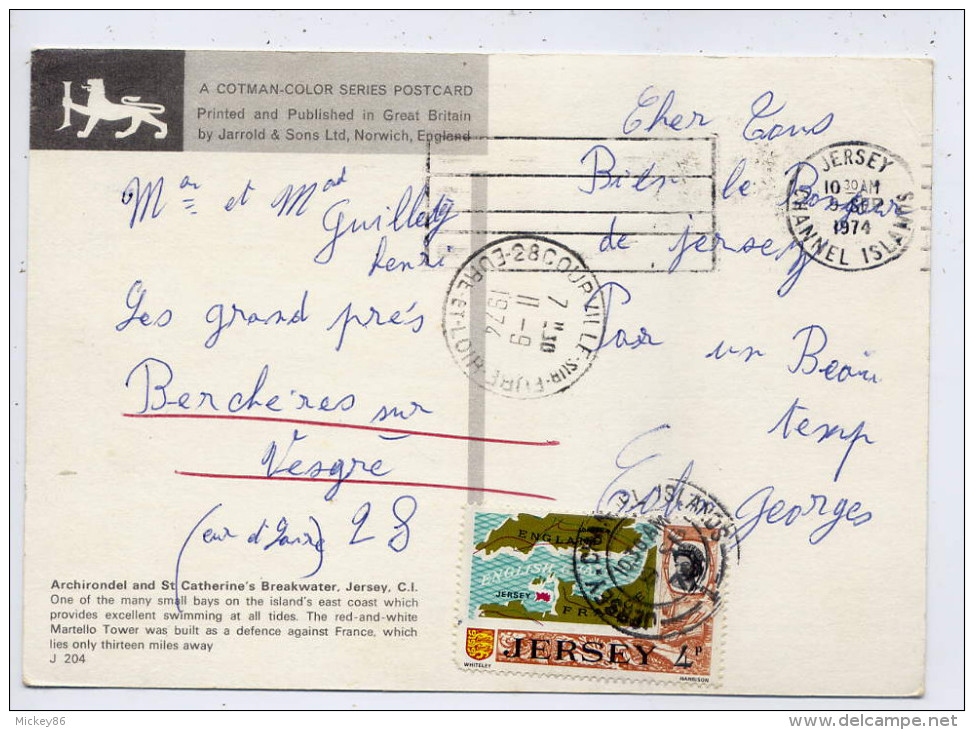 A COTMAN-COLOR SERIES POSTCARD
Printed and Published in Great Britain
by Jarrold & Sons Ltd, Norwich, England
Mr et Mad
Guillet
henri
Les grand prés
Berchères sur
Vesgre
28
Cher Tous
le Bonjour
de jersey
Par un Beau
temp
Georges
JERSEY
10 30 AM
9 SEP
1974
CHANNEL ISLANDS
28 COURVILLE-SUR-EURE
EURE-ET-LOIR
7 H 30
11 - 9
1974
JERSEY CHANNEL ISLANDS
10 30 AM
ENGLAND
ENGLISH
JERSEY
FRA
JERSEY 4P
WHITELEY
HARRISON
Archirondel and St Catherine's Breakwater, Jersey, C.I.
One of the many small bays on the island's east coast which
provides excellent swimming at all tides. The red-and-white
Martello Tower was built as a defence against France, which
lies only thirteen miles away
J 204
Mickey86
delcampe.net